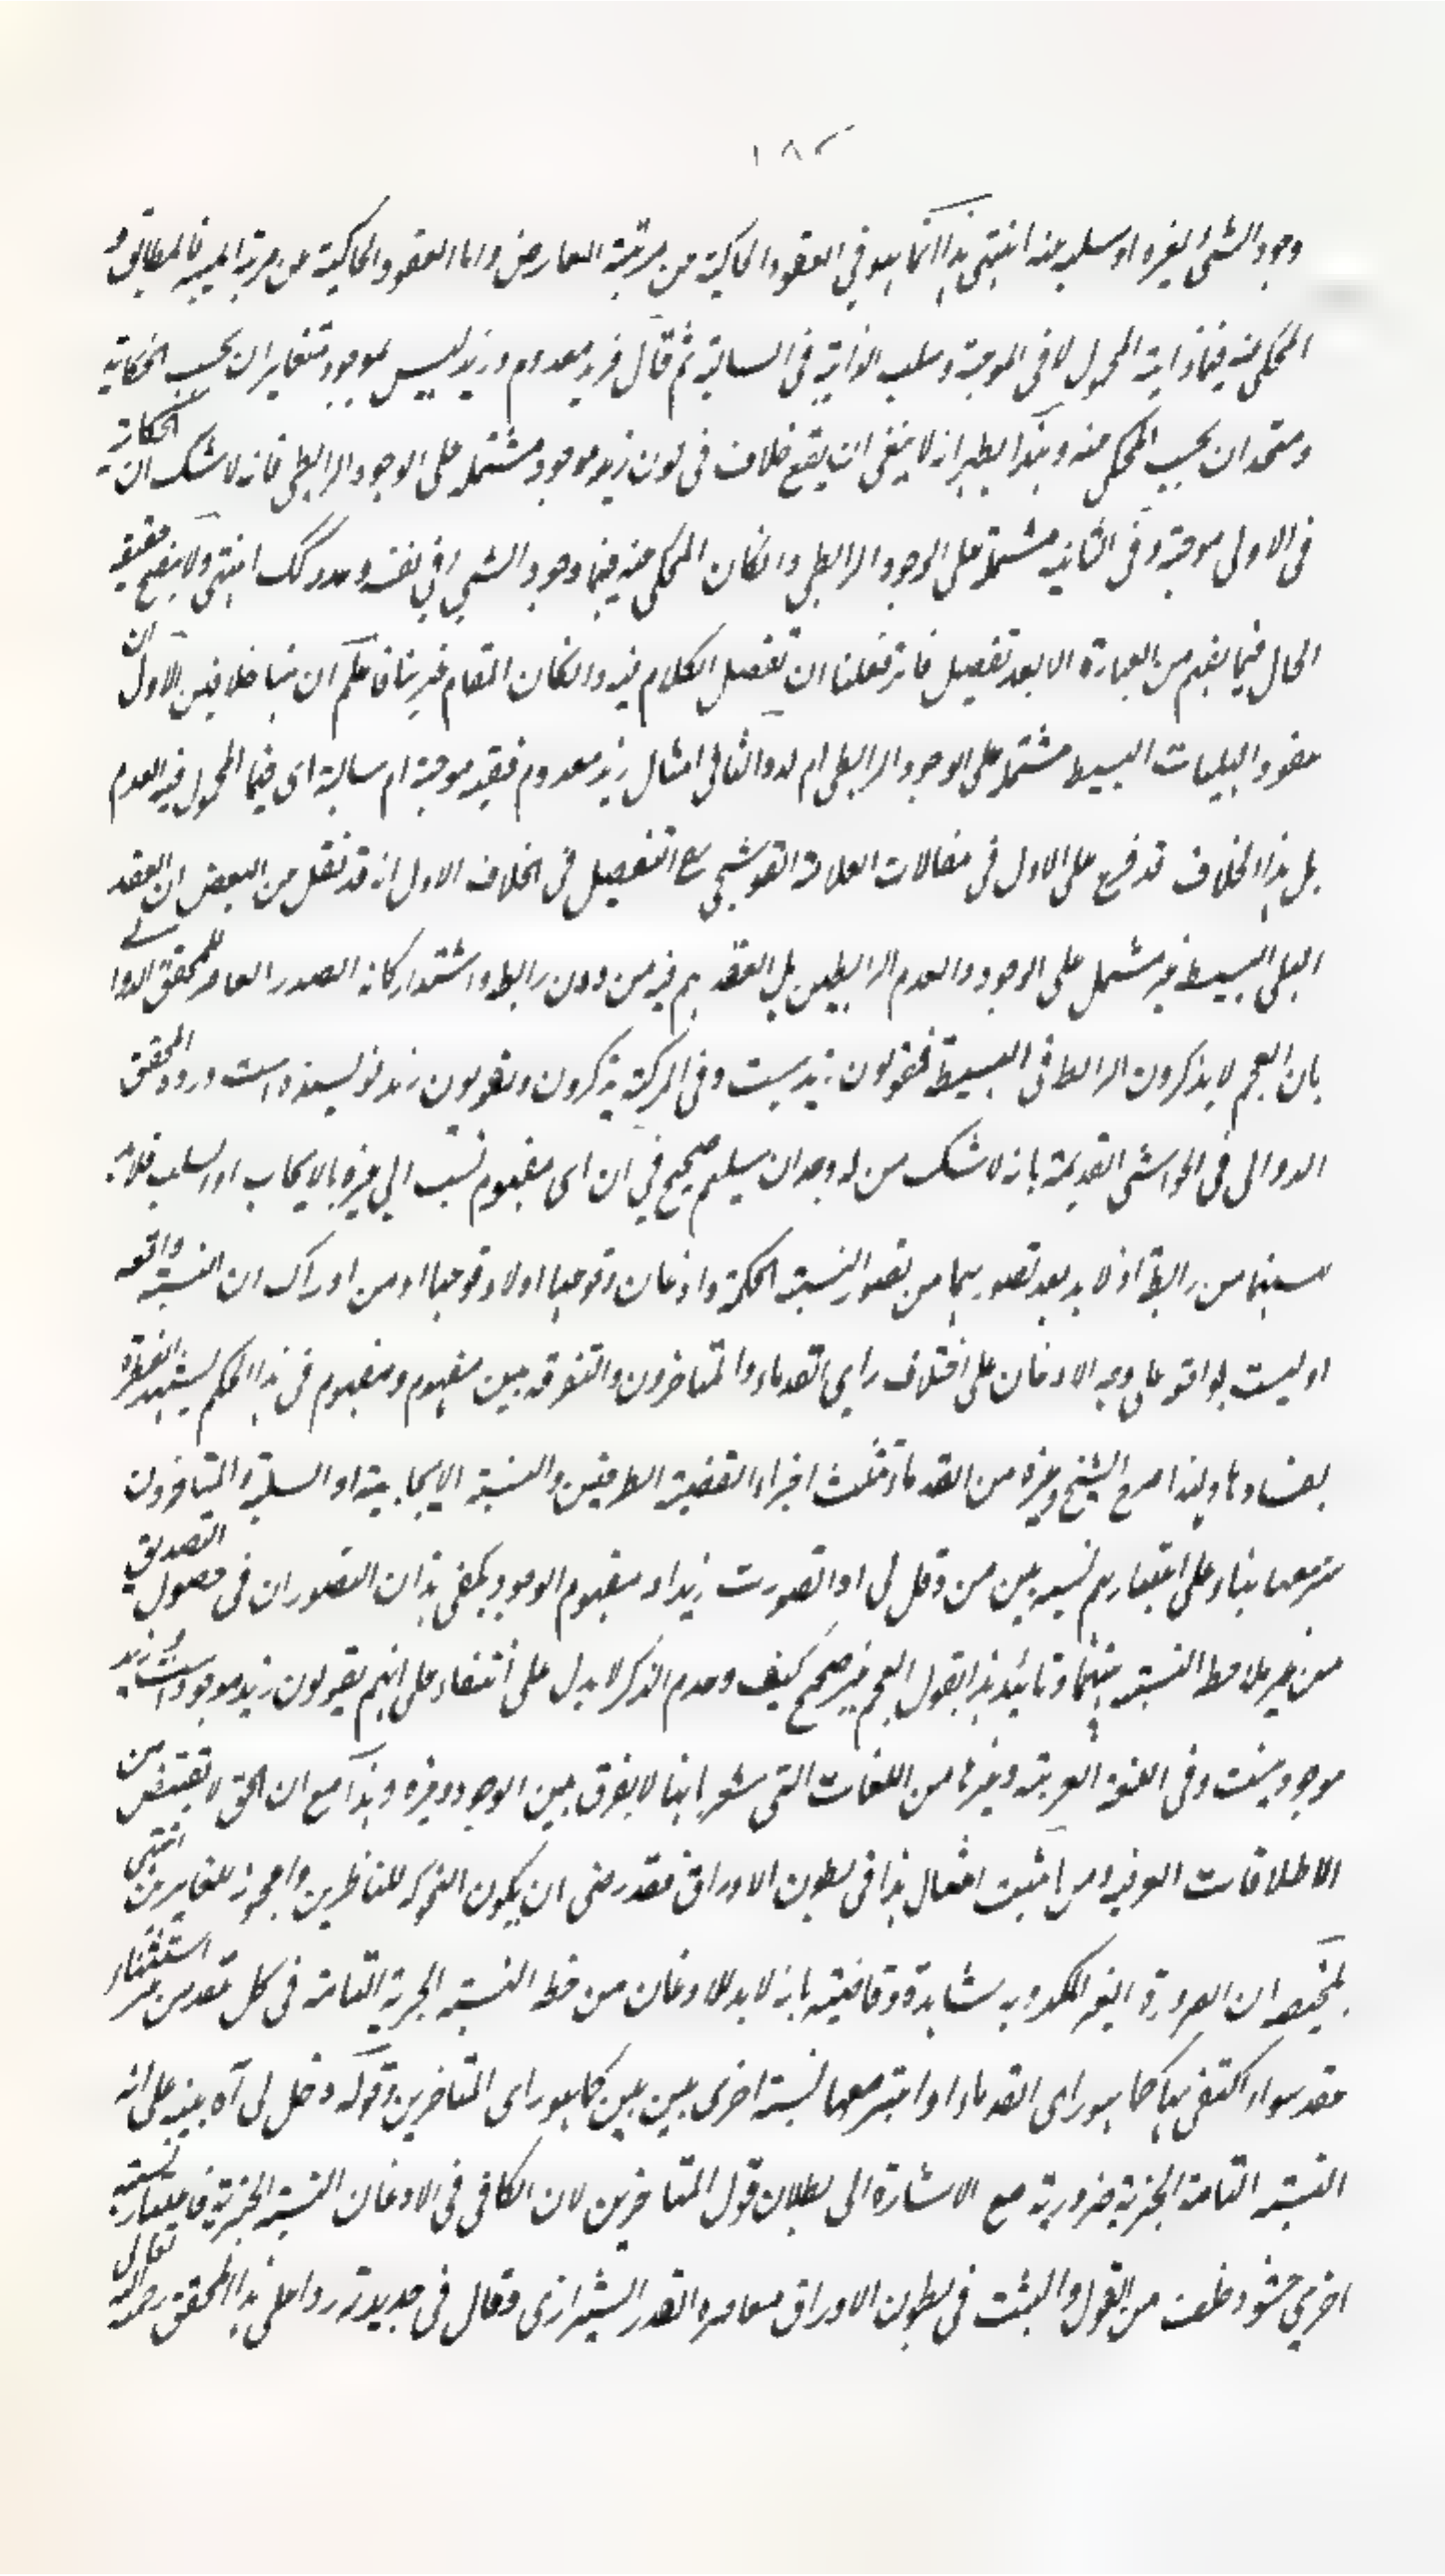 ١٨٢
وجود الشئ لغيره او سلبه عنه انتهى هذا انما هو فى العقود الحاكية من مرتبة العارض واما العقود الحاكية من مرتبة المهية فالمطابق و
المحكى عنه فيها ذاتية المحمول لا فى الموجبة وسلب الذاتية فى السالبة ثم قال فزيد معدوم وزيد ليس بموجود متغايران بحسب الحكاية
ومتحدان بحسب المحكى عنه وبهذا يظهر انه لا ينبغى ان يقع خلاف فى كون زيد موجود مشتملة على الوجود الرابطى فانه لا شك ان الحكاية
فى الاولى موجبة وفى الثانية مشتملة على الوجود الرابطى وانكان المحكى عنه فيهما وجود الشئ فى نفسه وعدمه كك انتهى ولا يتضح حقيقة
الحال فيما يفهم من العبارة الا بعد تفصيل فانه فعلنا ان تفصيل الكلام فيه وانكان المقام غير فاعلم ان ههنا خلافين الاول ان
عقود الهليات البسيط مشتملة على الوجود الرابطى ام لا والثانى امثال زيد معدوم فقيه موجبة ام سالبة اى فيما المحمول فيه العدم
بل هذا الخلاف قد فرع على الاول فى مقالات العلامة القوشجى مع التفصيل فى الخلاف الاول انه قد نقل من البعض ان العقد
الهلى البسيط غير مشتمل على الوجود والعدم الرابطين بل العقد يتم فيه من دون رابط واشتد اركانه الصدر المعاصر للمحقق الدوانى
بان العجم لا يذكرون الرابط فى البسيطة فيقولون زيد هست وفى المركبة يذكرون ويقولون زيد نويسنده است ورده المحقق
الدوانى فى الحواشى القديمة بانه لا شك من له وجدان سليم صحيح فى ان اى مفهوم نسب الى غيره بالايجاب او السلب فلا بد
بينهما من رابطة اذ لا بد بعد تصورهما من تصور النسبة الحكمية واذعان وقوعها اولا وقوعها او من ادراك ان النسبة واقعة
او ليست بواقعة على وجه الاذعان على اختلاف راى القدماء والمتاخرون والتفرقة بين مفهوم ومفهوم فى هذا الحكم يشهد الفطرة
بفسادها ولهذا صرح الشيخ وغيره من القدماء تثلث اجزاء القضية الطرفين والنسبة الايجابية او السلبية والمتاخرون
تربيعها بناء على اعتبارهم نسبة بين بين وقل لى اذا تصورت زيدا و مفهوم الوجود يكفى هذان التصوران فى حصول التصديق
من غير ملاحظة النسبة بينهما وتائيد هذا بقول العجم غير صحيح كيف وعدم الذكر لا يدل على انتفاء على انهم يقولون زيد موجود است و زيد
موجود نيست وفى اللغة العربية وغيرها من اللغات التى شعرنا بها لا يفرق بين الوجود وغيره وهذا مع ان الحق لا يقتنص من
الاطلاقات العرفية ومن اثبت امثال هذا فى بطون الاوراق فقد رضى ان يكون التذكرة للناظرين واعجوبة للغابرين انتهى
تلخيصه ان الضرورة الغير المكذوبة شاهدة وقاضية بانه لا بد للاذعان من ربط النسبة الخبرية التامة فى كل عقد من غير استثناء
عقد سواء اكتفى بها كما هو راى القدماء او اعتبر معها نسبة اخرى بين بين كما هو راى المتاخرين وقوله وقل لى آه بينة على ان
النسبة التامة الخبرية ضرورية مع الاشارة الى بطلان قول المتاخرين لان الكافى فى الاذعان النسبة الخبرية فاعتبار نسبة
اخرى حشو من القول والمثبت فى بطون الاوراق معاصره الصدر الشيرازى فقال فى جديدته ردا على هذا المحقق رحمه الله تعالى